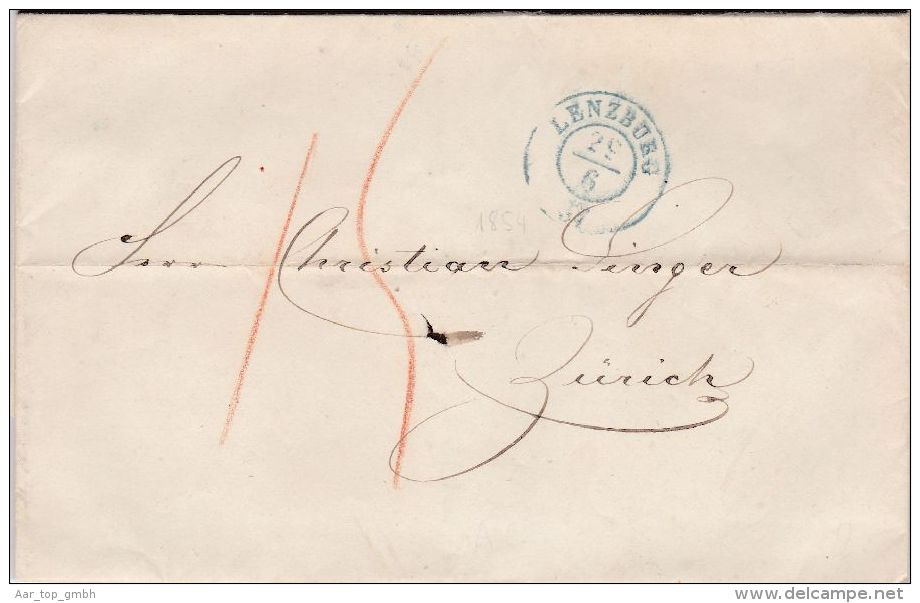 LENZBURG
29
6
1854
15
Herr Christian Singer
Zürich
Aar_top_gmbh
delcampe.net